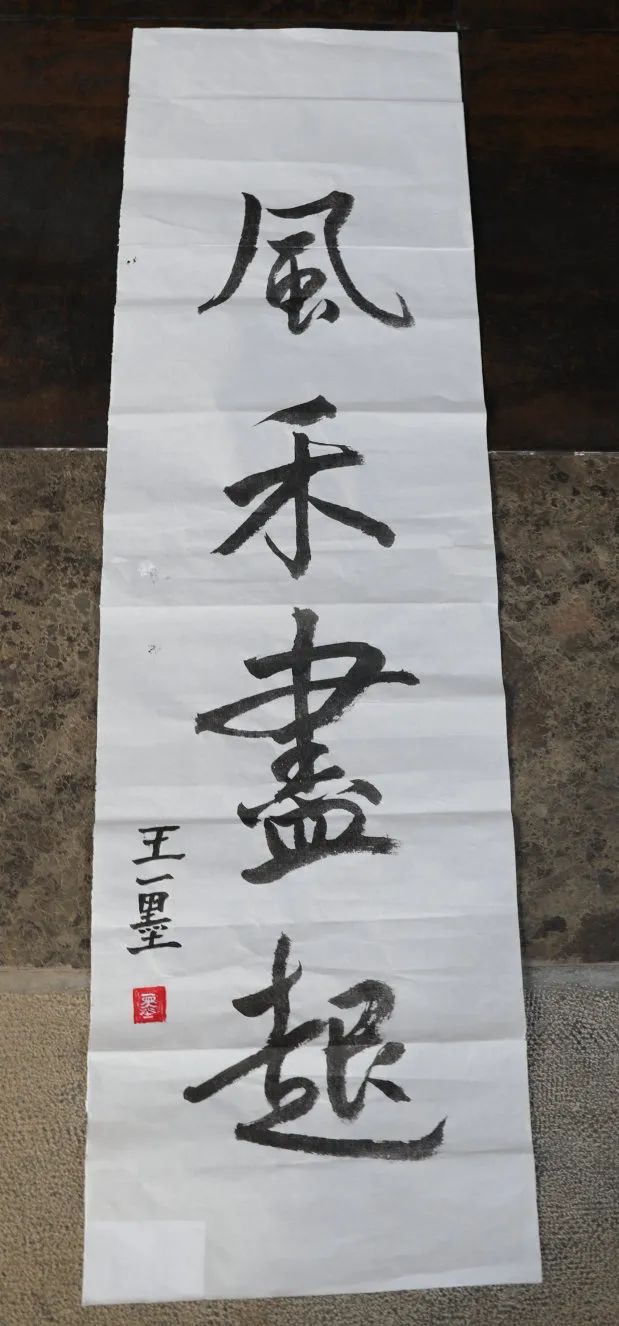 風禾盡起
王一墨